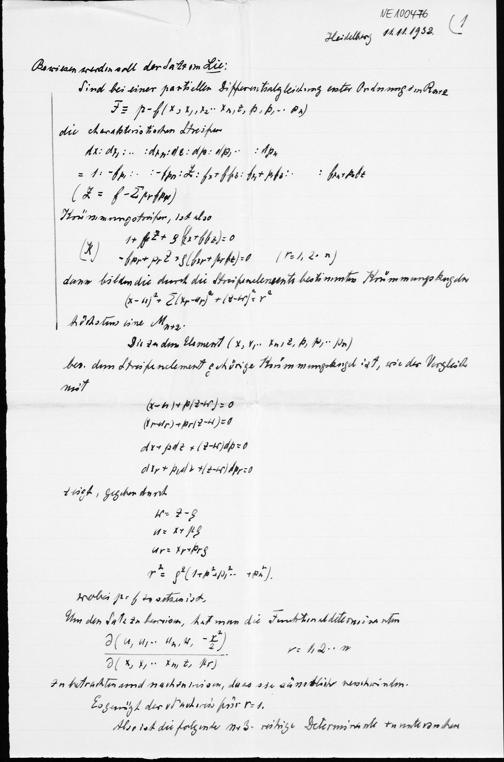 NE100476
(1
Heidelberg 11.11.1932.
Bewiesen werden soll der Satz von Lie:
Sind bei einer partiellen Differentialgleichung erster Ordnung im Raume
F ≡ p - f(x, x₁, x₂ ·· xₙ, z, p₁, p₂ ·· pₙ)
die charakteristischen Streifen
dx : dx₁ : ·· : dxₙ : dz : dp : dp₁ ·· : dpₙ
= 1 : -fp₁ : ·· : -fpₙ : Z : fx + f fz : fx₁ + p₁ fz : : fxₙ + pₙ fz
(Z = f - Σ pᵣ fpᵣ)
Krümmungsstreifen, ist also
(K) 1 + f Z + ρ(fx + f fz) = 0
-fpᵣ + pᵣ Z + ρ(fxᵣ + pᵣ fz) = 0 (r = 1, 2 ·· n)
dann bilden die durch die Streifenelemente bestimmten Krümmungskugeln
(x-u)² + Σ(xᵣ-uᵣ)² + (z-w)² = r²
höchstens eine Mₙ₊₂.
Die zu dem Element (x, x₁ ·· xₙ, z, p, p₁ ·· pₙ)
bez. dem Streifenelement gehörige Krümmungskugel ist, wie der Vergleich
mit
(x-u) + p(z-w) = 0
(xᵣ-uᵣ) + pᵣ(z-w) = 0
dx + p dz + (z-w) dp = 0
dxᵣ + pᵣ dz + (z-w) dpᵣ = 0
zeigt, gegeben durch
w = z - ρ
u = x + pρ
uᵣ = xᵣ + pᵣρ
r² = ρ²(1 + p² + p₁² ·· + pₙ²).
wobei p = f zu setzen ist.
Um den Satz zu beweisen, hat man die Funktionaldeterminanten
∂(u, u₁ ·· uₙ, w, -r²/2)
∂(x, x₁ ·· xₙ, z, pᵣ) r = 1, 2 ·· n
zu betrachten und nachzuweisen, dass sie sämtlich verschwinden.
Es genügt der Nachweis für r = 1.
Also ist die folgende n+3-reihige Determinante zu untersuchen